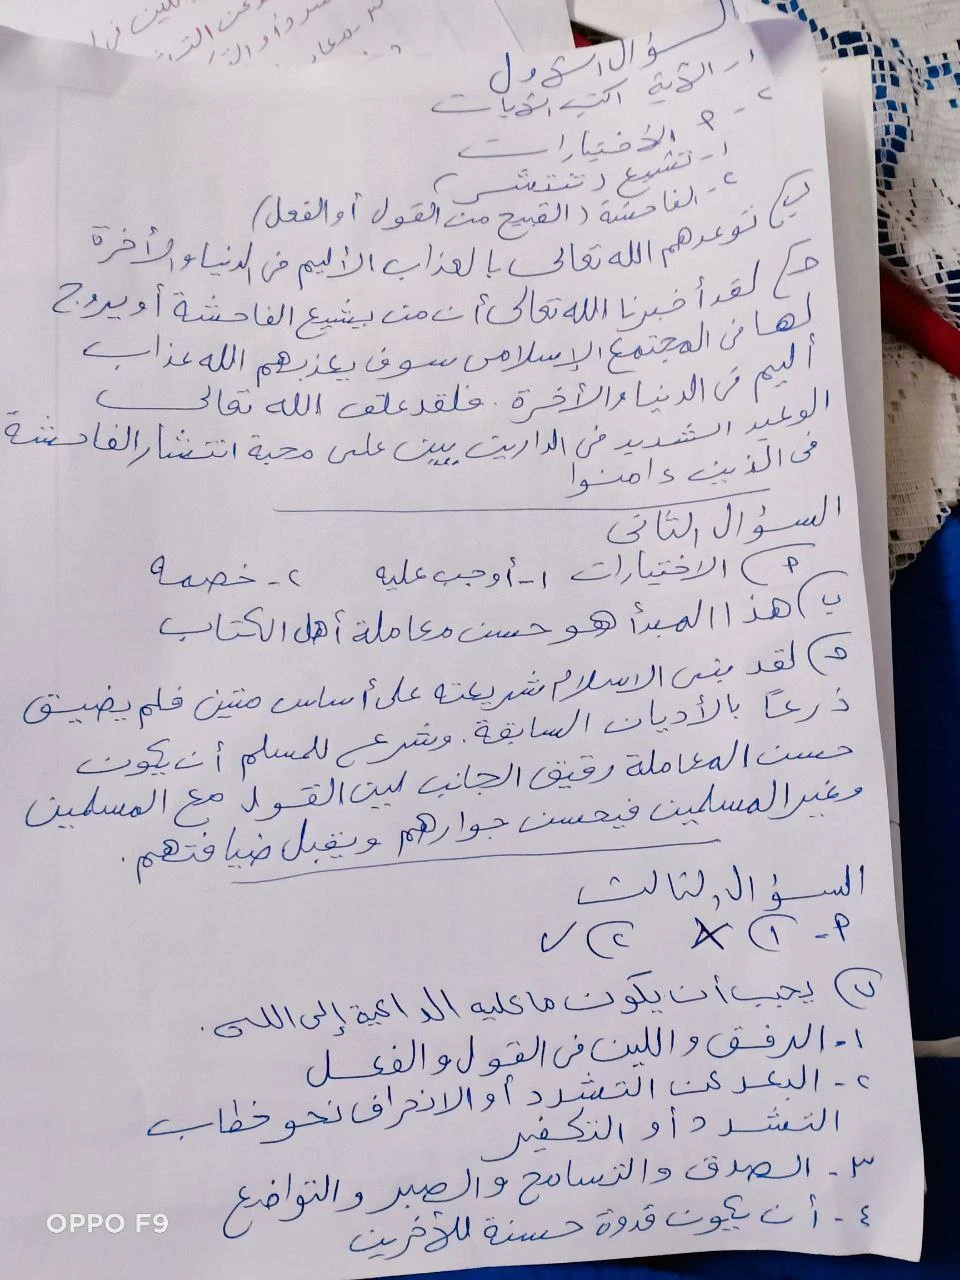 السؤال الأول
١- الآية اكتب الآيات
٢- P الاختيارات
١- تشيع (تنتشر)
٢- الفاحشة (القبيح من القول أو الفعل)
ب) توعدهم الله تعالى بالعذاب الأليم في الدنيا والأخرة
ج) لقد أخبرنا الله تعالى أن من يشيع الفاحشة أو يروج
لها في المجتمع الإسلامى سوف يعذبهم الله عذاب
أليم في الدنيا والأخرة. فلقد علق الله تعالى
الوعيد الشديد في الدارين على محبة انتشار الفاحشة
في الذين ءامنوا
السؤال الثانى
P) الاختيارات ١- أوجب عليه ٢- خصمه
ب) هذا المبدأ هو حسن معاملة أهل الكتاب
ج) لقد بنى الاسلام شريعته على أساس متين فلم يضيق
ذرعاً بالأديان السابقة. وشرع للمسلم أن يكون
حسن المعاملة رقيق الجانب لين القول مع المسلمين
وغير المسلمين فيحسن جوارهم ويقبل ضيافتهم.
السؤال الثالث
P- ١) X ٢) ✓
ب) يجب أن يكون ما عليه الداعية إلى الله.
١- الرفق واللين في القول والفعل
٢- البعد عن التشدد أو الانحراف نحو خطاب
التشدد أو التكفير
٣- الصدق والتسامح والصبر والتواضع
٤- أن يكون قدوة حسنة للأخرين
OPPO F9